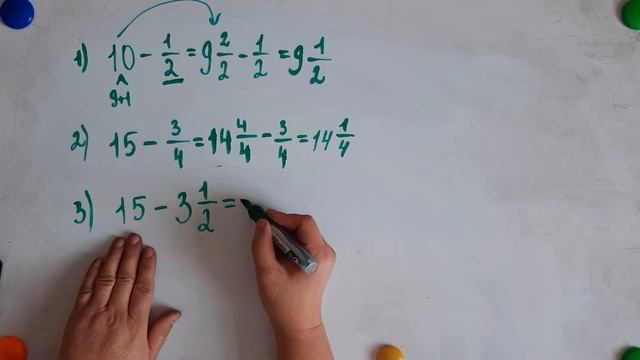 1) 10 - 1/2 = 9 2/2 - 1/2 = 9 1/2
9+1
2) 15 - 3/4 = 14 4/4 - 3/4 = 14 1/4
3) 15 - 3 1/2 =